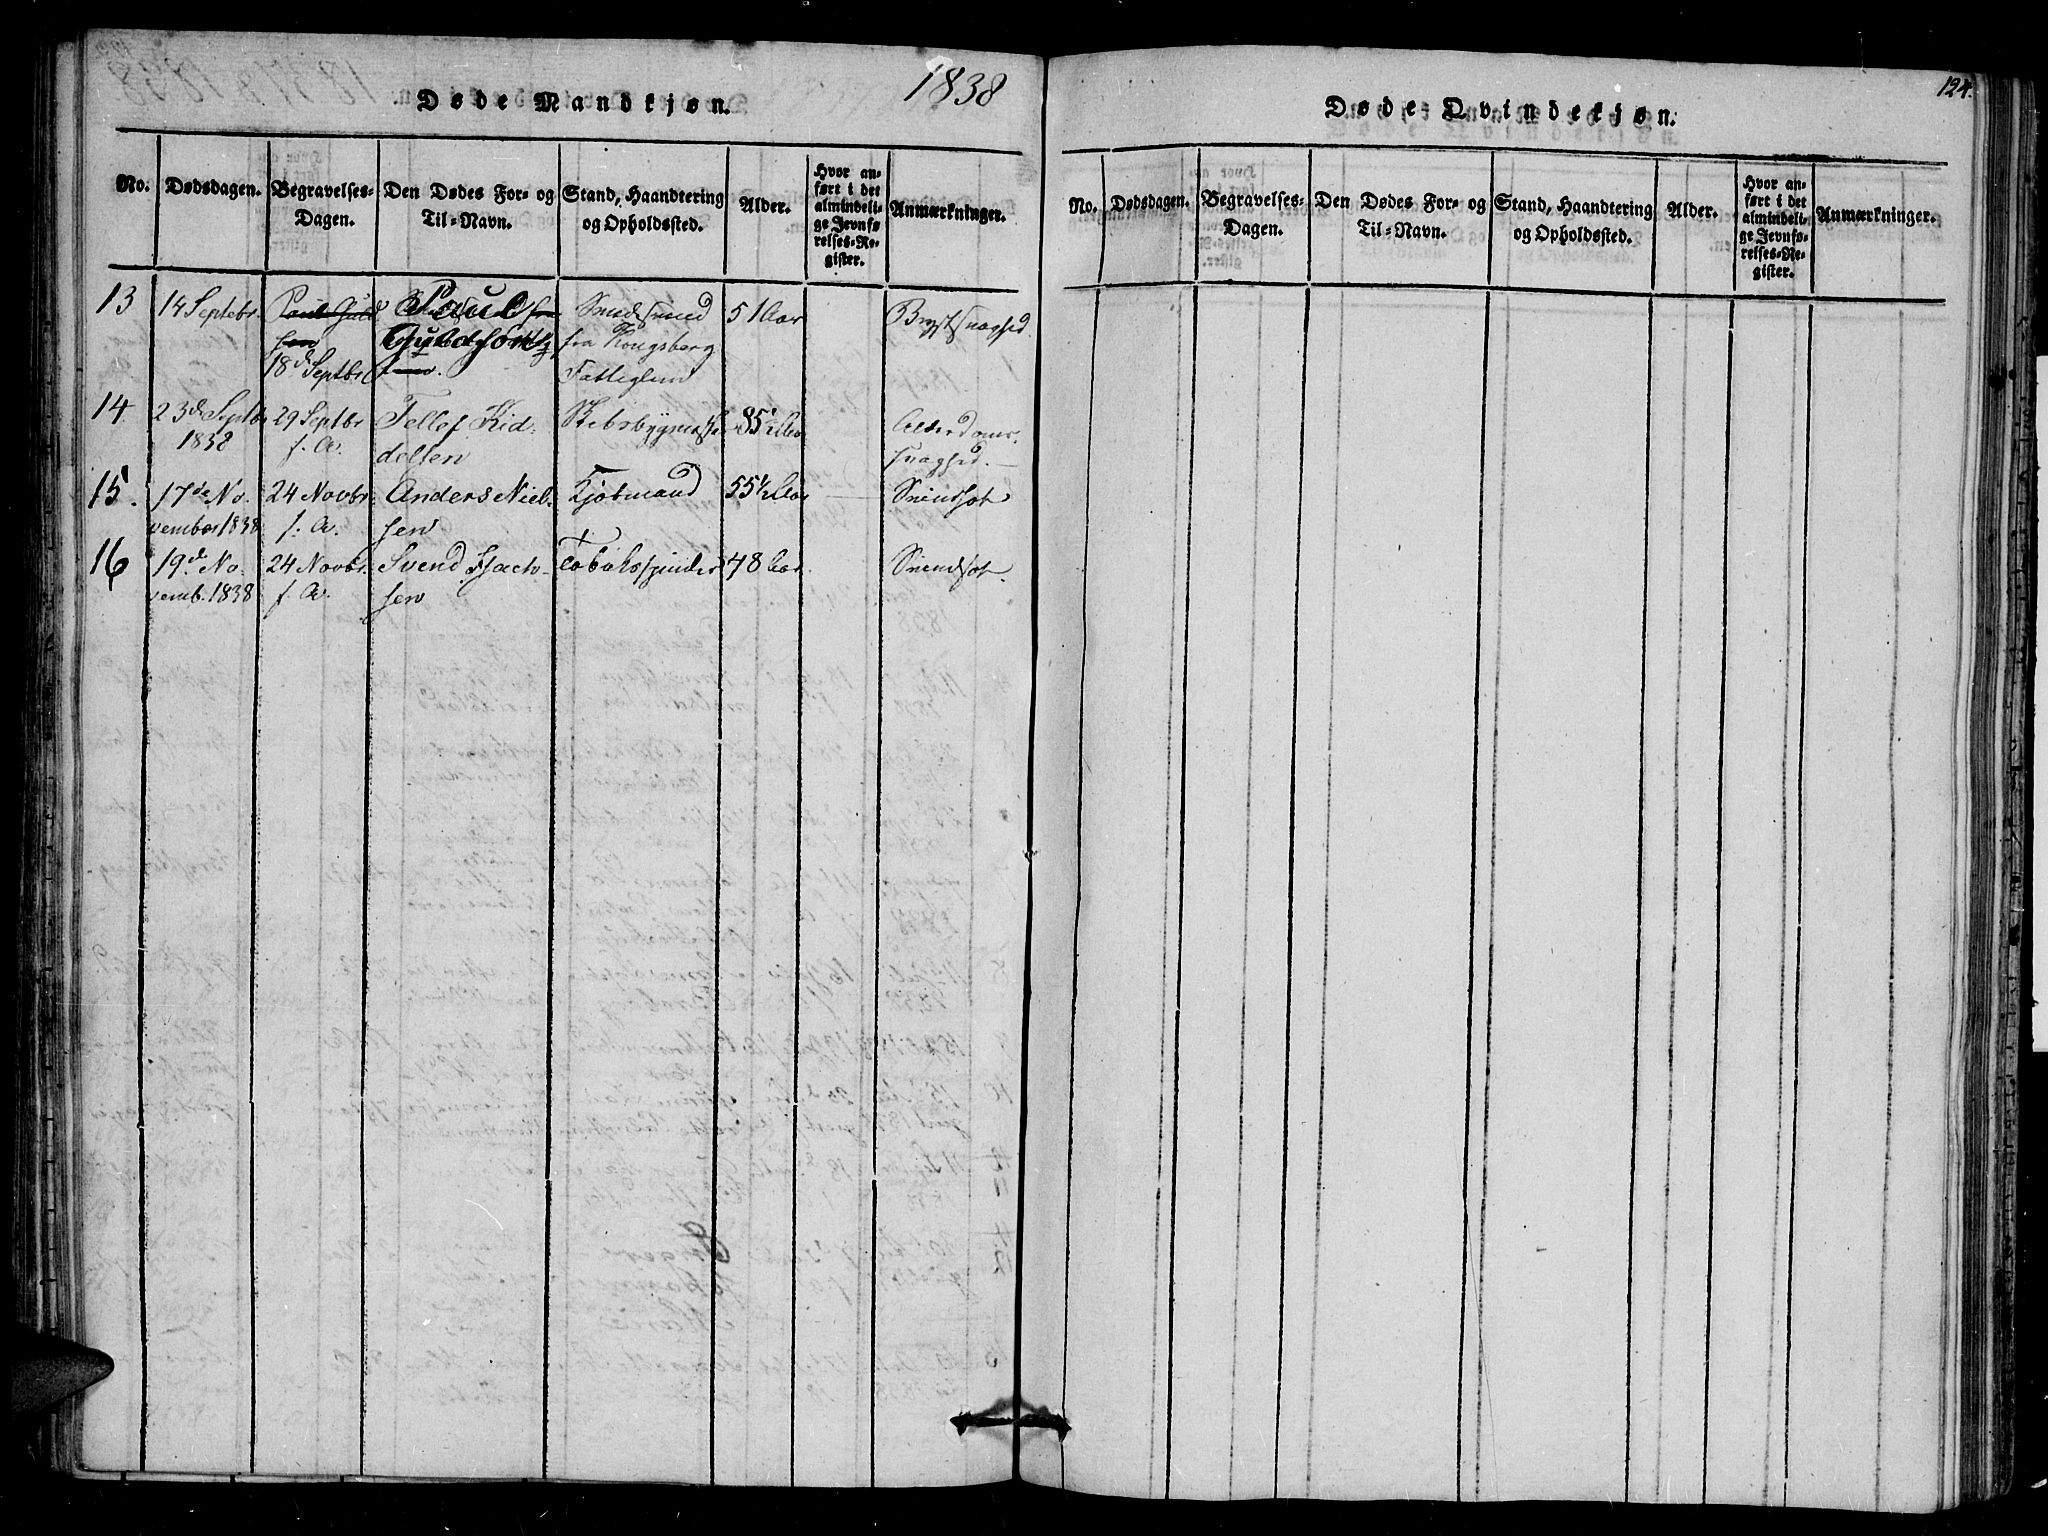 1838
Døde Mandkjøn.
No.
Dødsdagen.
Begravelses-
Dagen.
Den Dødes For- og
Til-Navn.
Stand, Haandtering
og Opholdssted.
Alder.
Hvor an-
ført i det
almindeli-
ge Jevnfø-
relses-Re-
gister.
Anmærkninger.
13
14 Septebr.
Paul Guld
sen
18d Septbr
Paul
Guldsen
fra Kongsberg
Fattiglem
51 Aar
Brystsvaghed
14
23d Septbr
1838
29 Septbr
f. A.
Tellef Kid-
delsen
85½ Aar
Alderdoms-
svaghed.
15.
17de No-
vember 1838
24 Novbr.
f. A.
Anders Niel-
sen
Kjøbmand
55½ Aar
16
19d No-
vemb. 1838
24 Novbr.
f. A.
Svend
sen
Tobaksspinder
48 Aar
124.
Døde Qvindekjøn.
No.
Dødsdagen.
Begravelses-
Dagen.
Den Dødes For- og
Til-Navn.
Stand, Haandtering
og Opholdssted.
Alder.
Hvor an-
ført i det
almindeli-
ge Jevnfø-
relses-Re-
gister.
Anmærkninger.